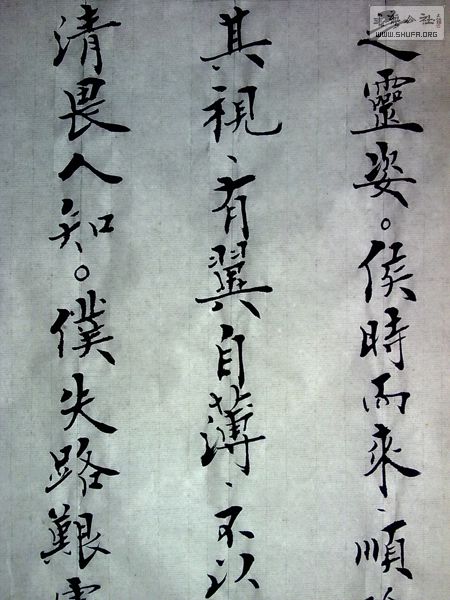 之靈姿。侯時而來、順
其視、有翼自薄、不以
清畏人知。僕失路艱
公社
WWW.SHUFA.ORG